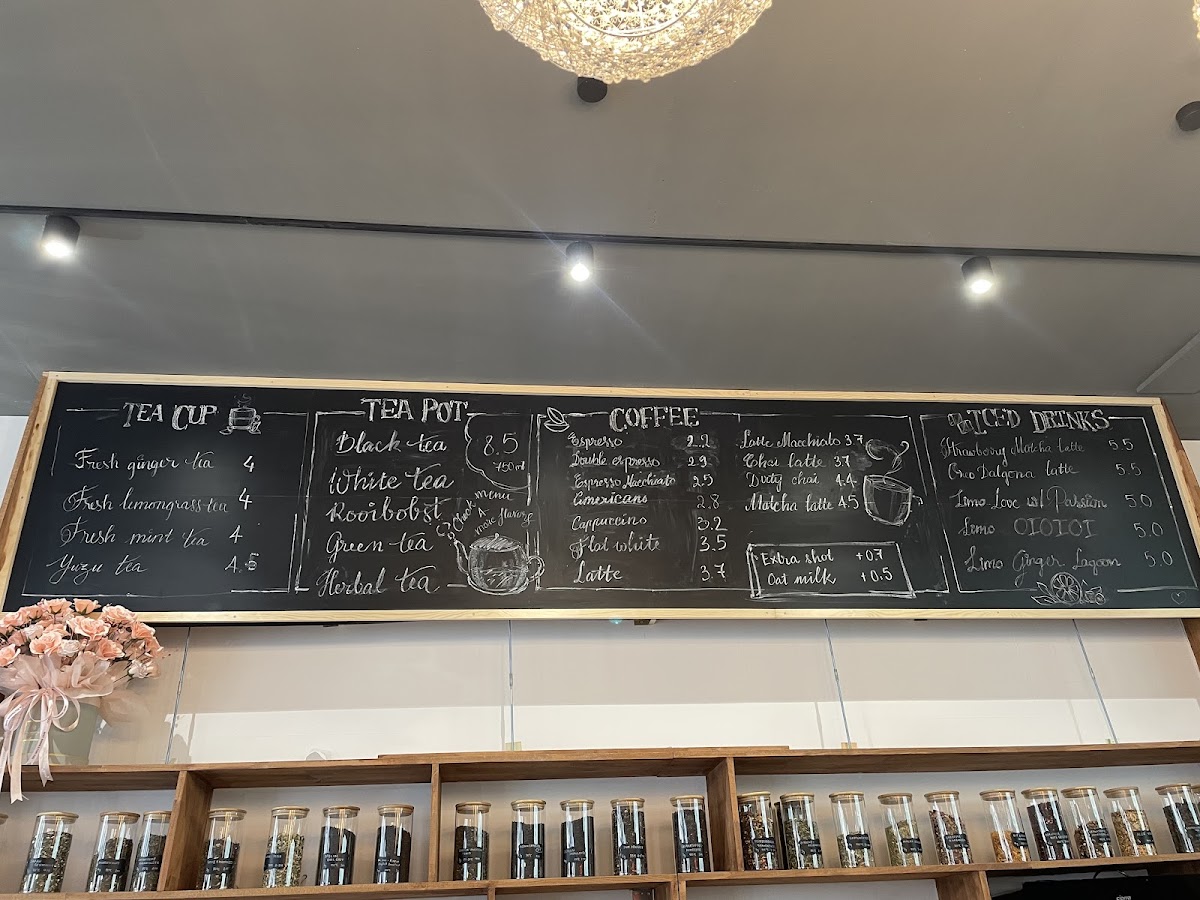 TEA CUP
Fresh ginger tea 4
Fresh lemongrass tea 4
Fresh mint tea 4
Yuzu tea 4.5
TEA POT
Black tea
White tea
Rooibobst
Green tea
Herbal tea
8.5
750ml
Check menu
4
more flavors
COFFEE
Espresso 2.2
Double espresso 2.9
Espresso Macchiato 2.5
Americano 2.8
Cappuccino 3.2
Flat white 3.5
Latte 3.7
Latte Macchiato 3.7
Chai latte 3.7
Dirty chai 4.4
Matcha latte 4.5
Extra shot +0.7
Oat milk +0.5
ICED DRINKS
Strawberry Matcha latte 5.5
Oreo Dalgona latte 5.5
Limo Love w/ Passion 5.0
Limo OIOIOI 5.0
Limo Ginger Lagoon 5.0